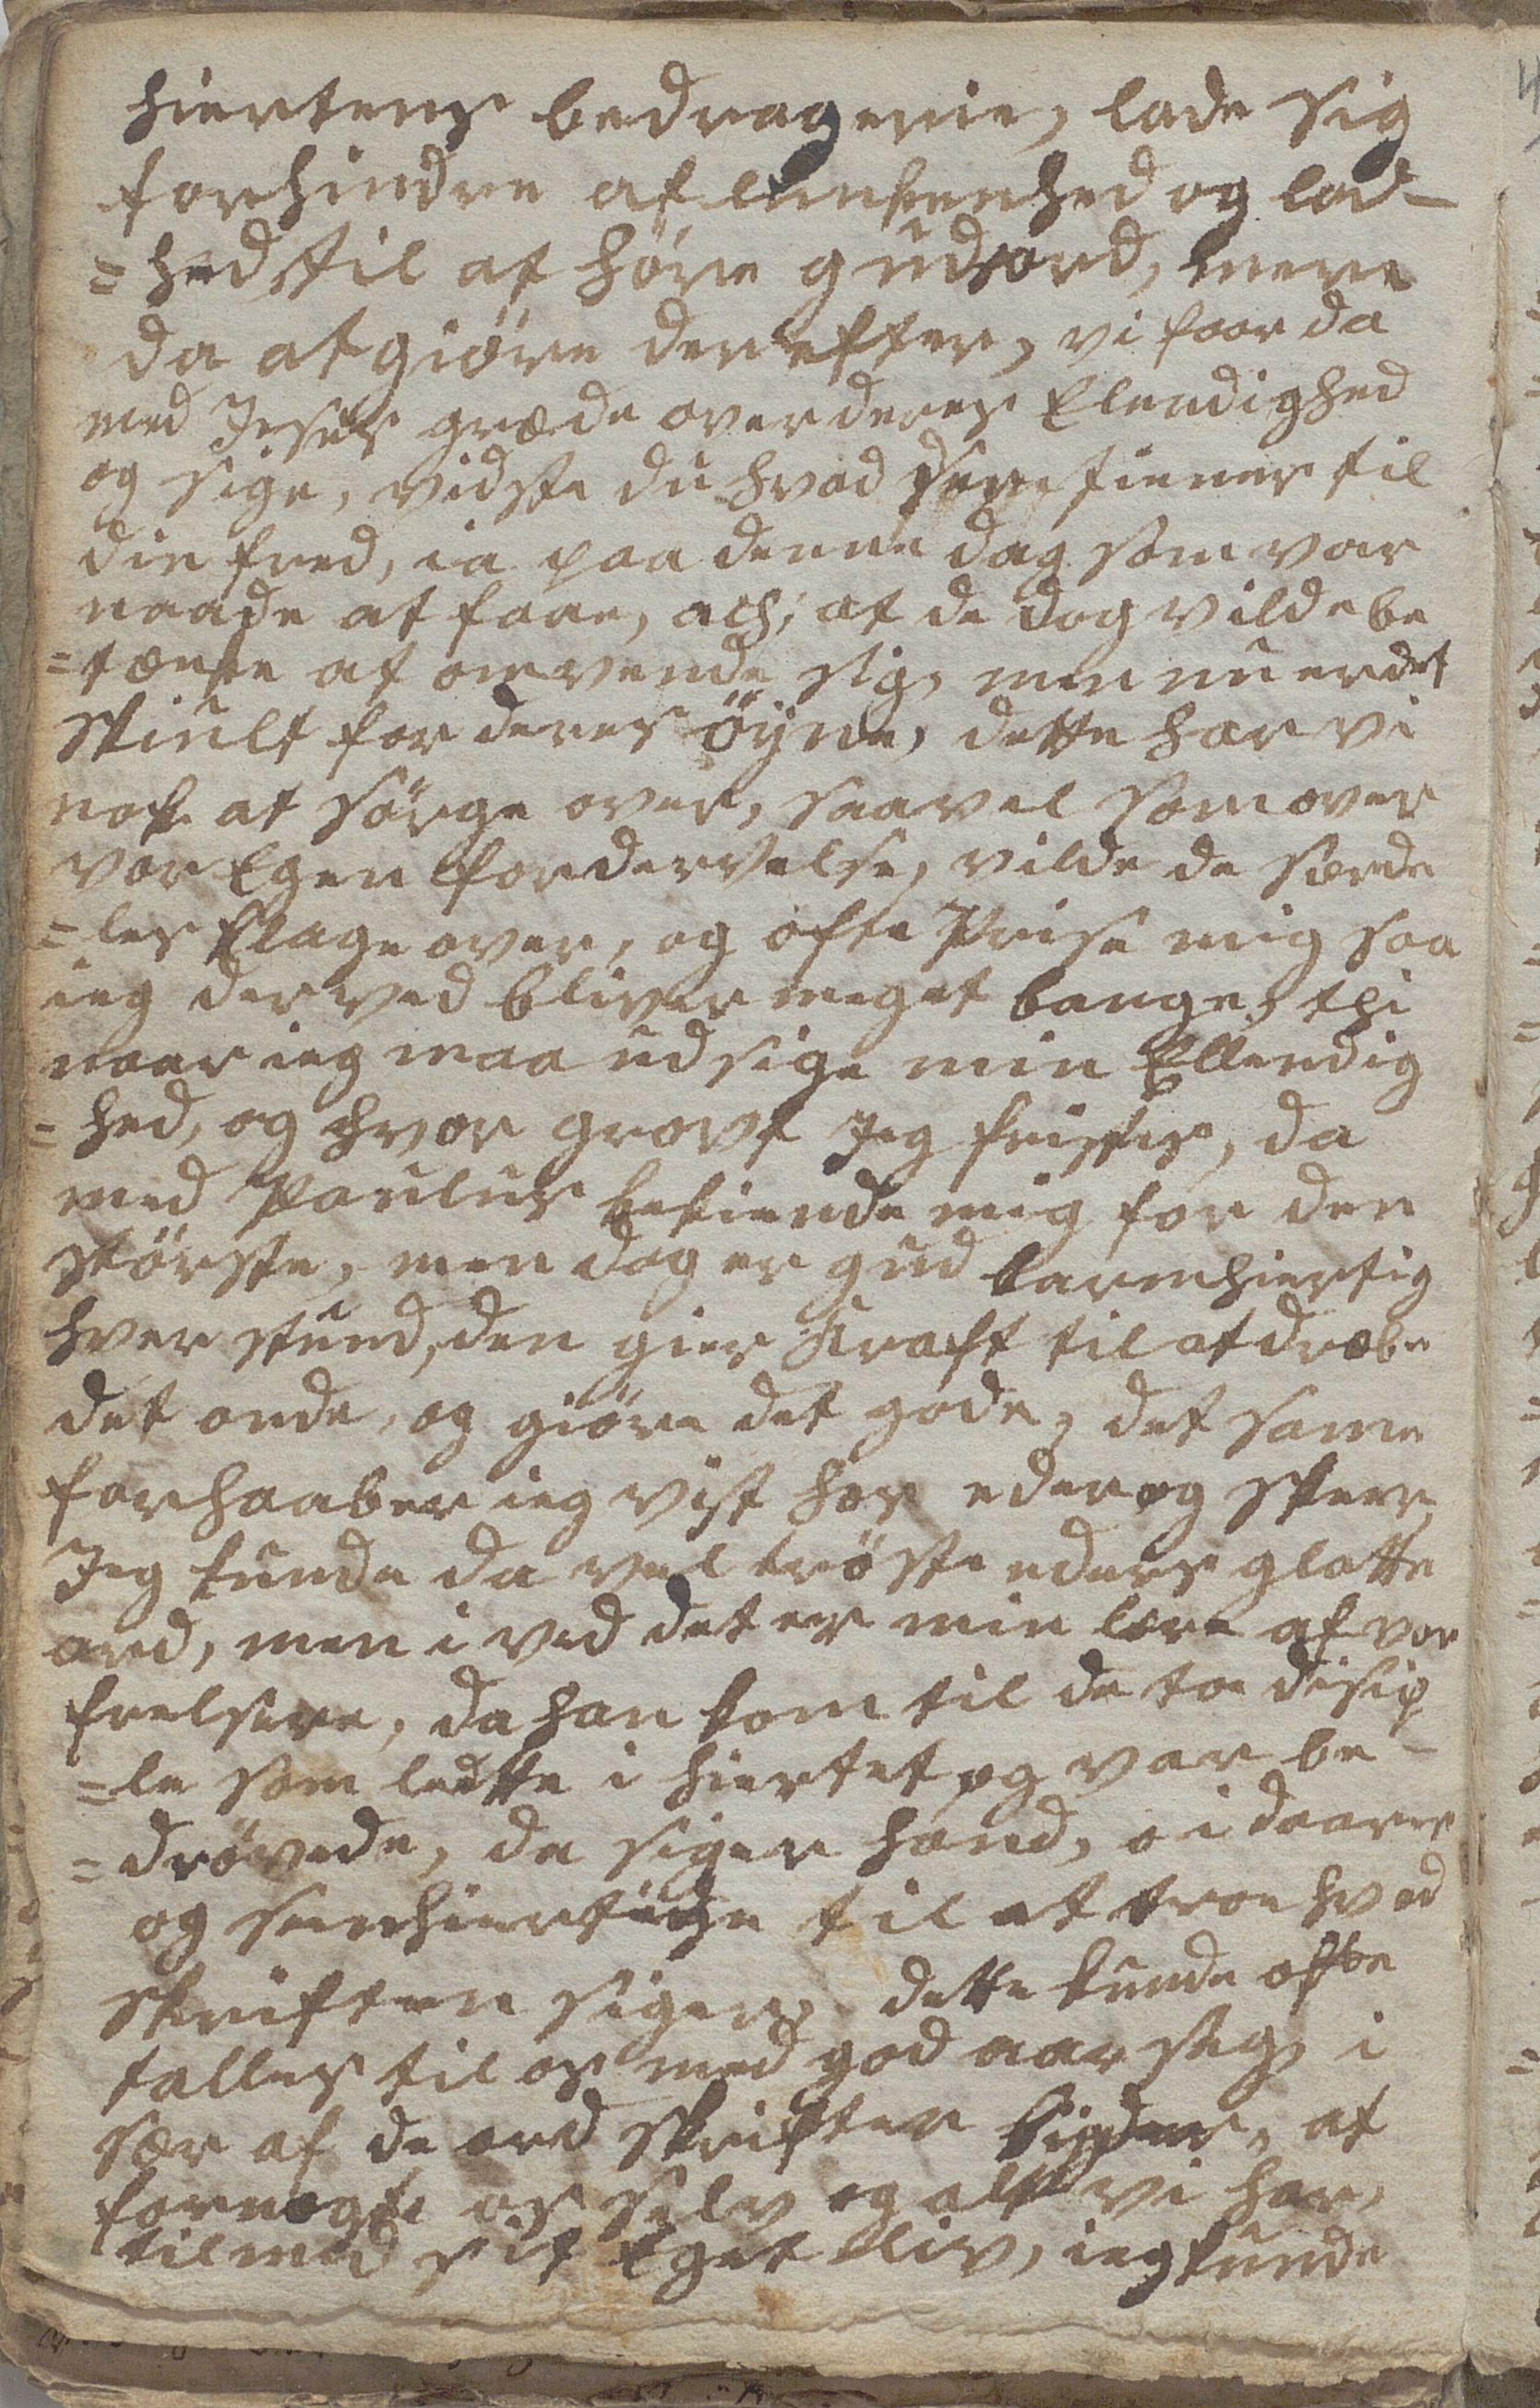 hiertens bedragerie, lade sig
forhindre af lunkenhed og lad-
=hed til at höre guds ord, mere
da at giöre der efter, vi faar da
med Jesus græde over deres Elendighed
og sige, vidste du hvad som tiener til
din fred, ia paa denne dag som var
naade at faae, ach, at de dog vilde be
=tænke at omvende sig, men nu er det
skiult for deres öyne, dette har vi
nok at sörge over, saavel som over
vor Egen fordervelse, vilde de særde
=les klage over, og ofte Prise mig saa
ieg derved bliver meget bange, thi
naar ieg maa udsige min Ellendig
=hed, og hvor grovt Jeg fristes, da
med Paulus bekiende mig for den
störste, men dog er gud barmhiertig
hver stund, den gier Kraft til at dræbe
det onde, og giöre det gode, det same
forhaaber ieg vist hos eder og skeer,
Jeg kunde da vel tröste eders glatte
ord, men i ved det er min lære af vor
frelsere, da han kom til de to disip
=le som ledte i hiertet og var be-
=drövede, da siger hand, o i daarer
og seenhiertige til at troe hvad
skriften siger, dette kunde ofte
talles til os med god aarsag, i
sær af de ord skriften binder, at
fornegte os selv og alt vi har,
til med sit Eget liv, ieg kunde